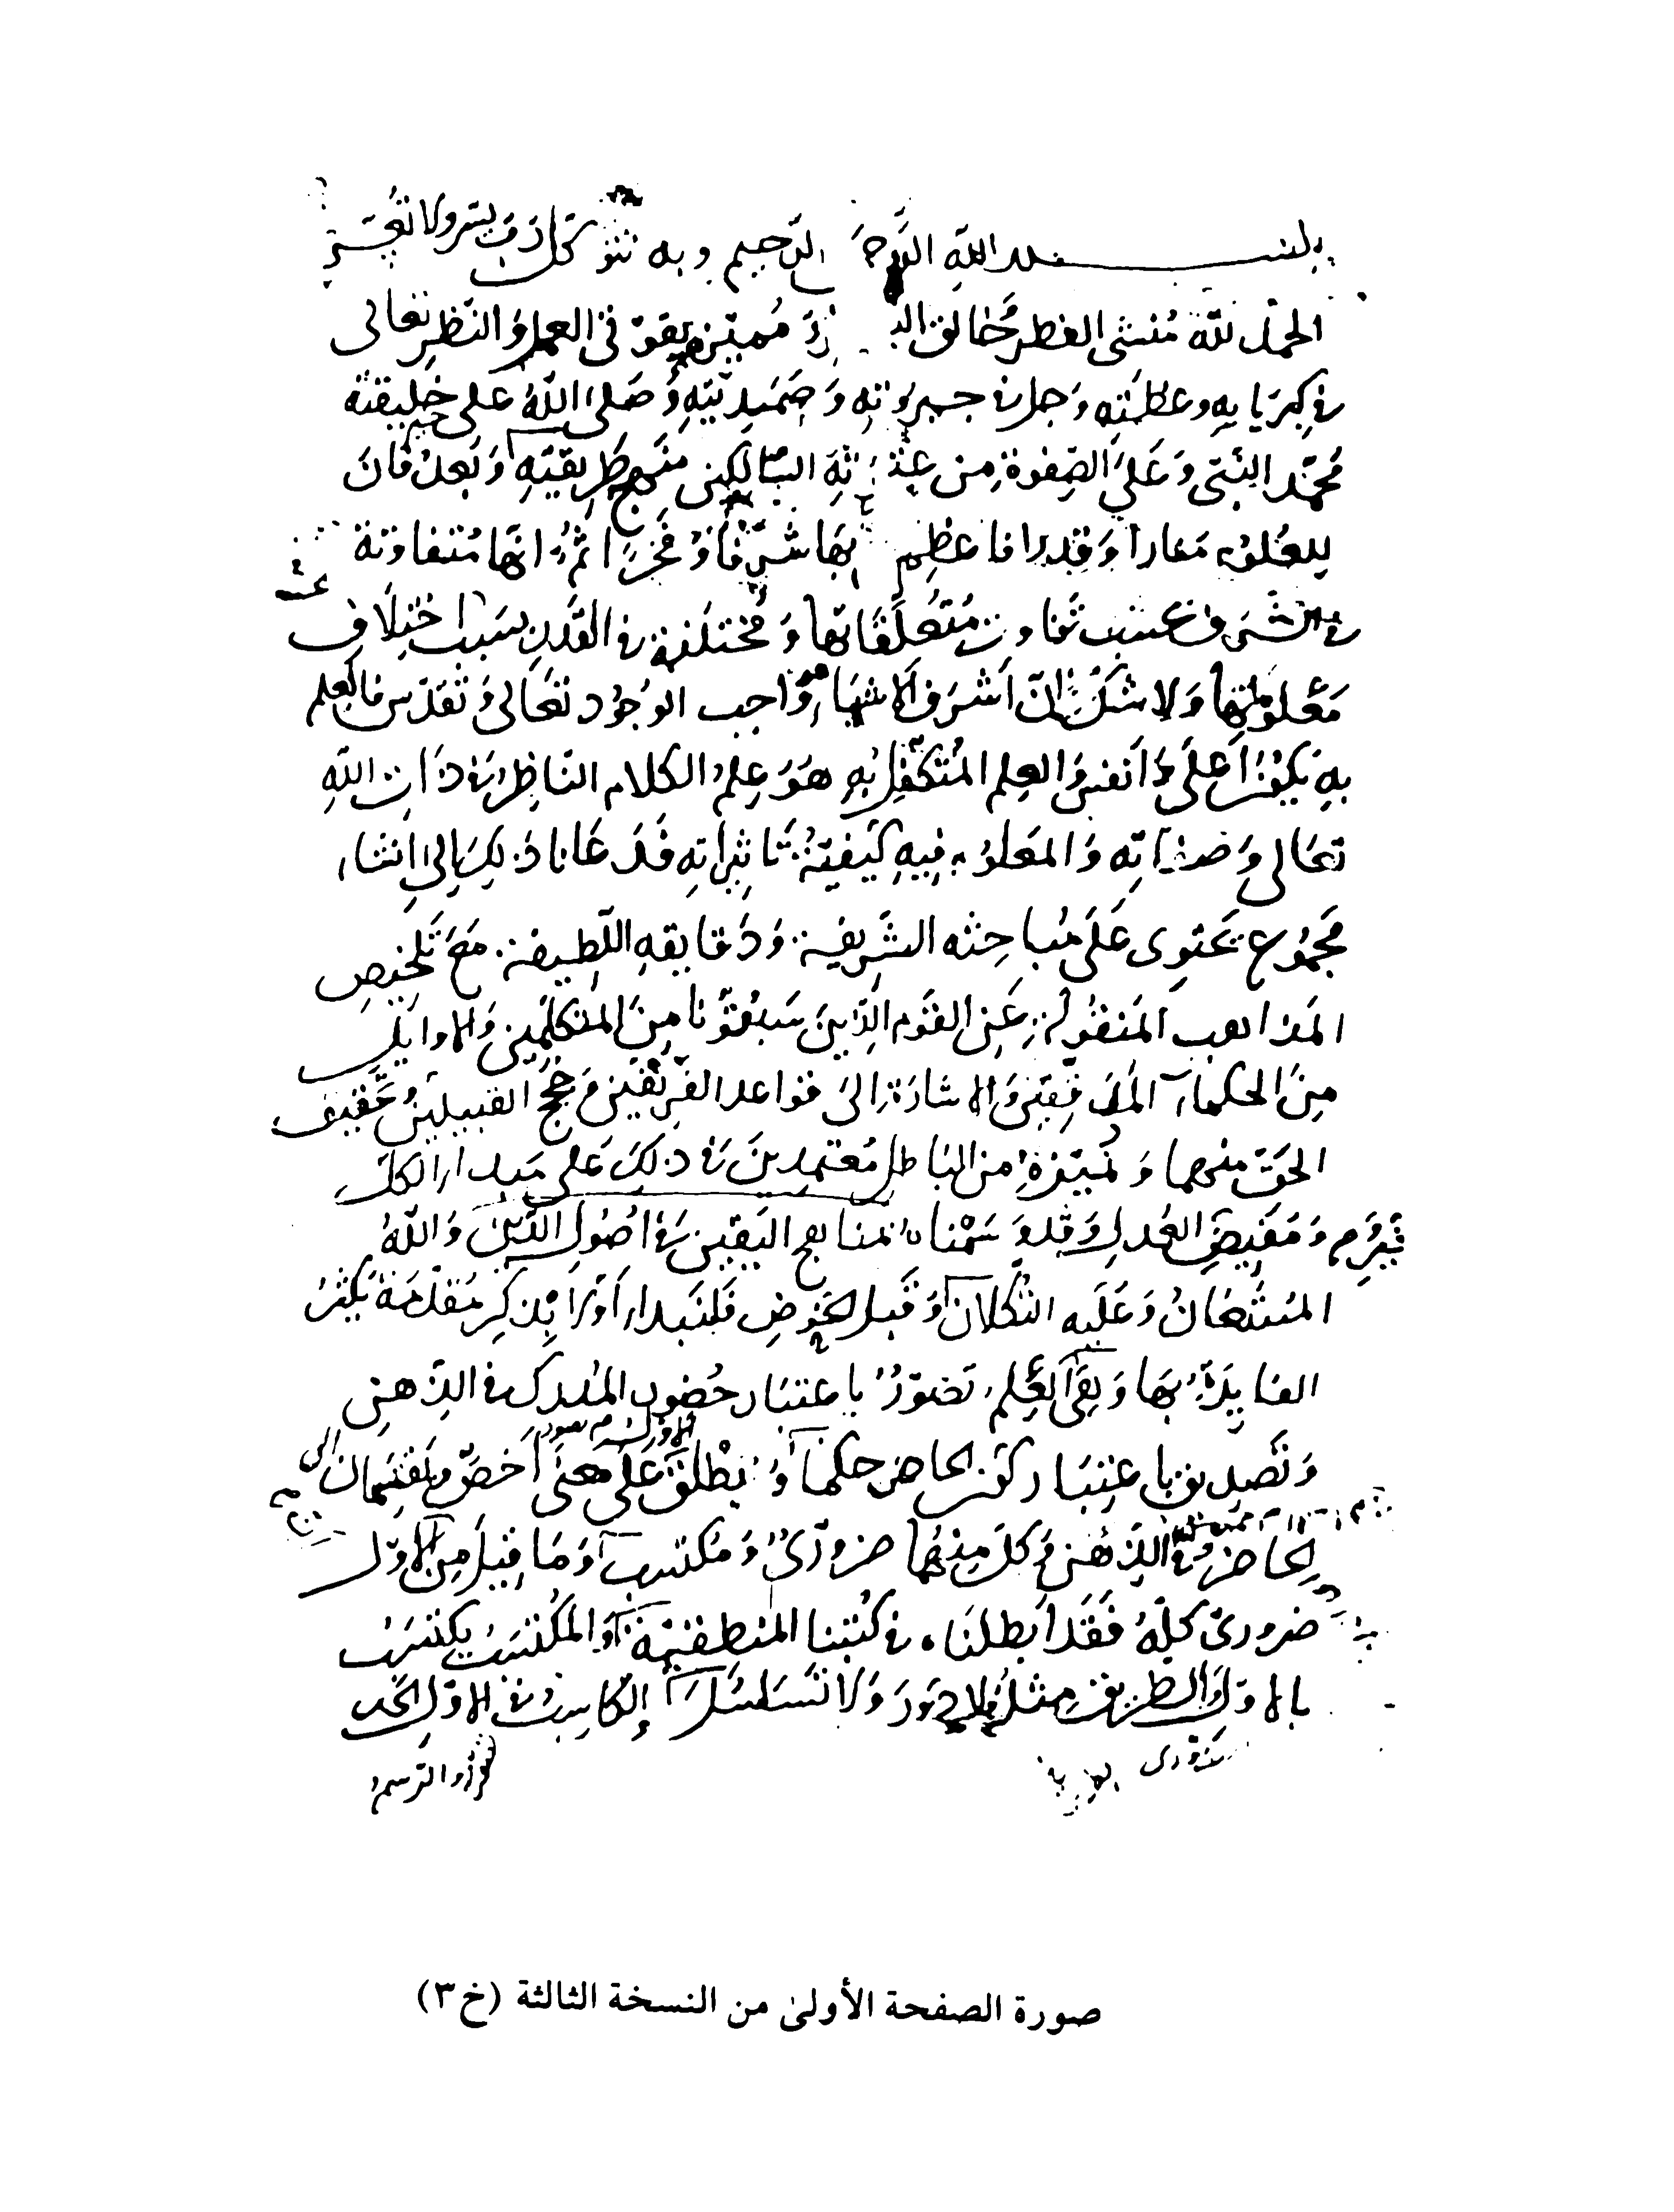 بسم الله الرحمن الرحيم وبه نثق رب يسر ولا تعسر
الحمد لله منشئ الفطر وخالق مميزه بقوتى العمل والنظر تعالى
فى كبريايه وعظمته وجل فى جبروته وصمديته وصلى الله على خليقته
محمد النبى وعلى الصفوة من عترته السالكين منهج طريقته وبعد فان
للعلوم مقادا وقدرا فاعظم بها شرفا وفخرا ثم انها متفاوتة
فى الشرف بحسب تفاوت متعلقاتها ومختلفة فى القدر بسبب اختلاف
معلوماتها ولا شك ان اشرف الاشياء هو واجب الوجود تعالى وتقدس فالعلم
به يكون اعلى وانفس والعلم المتكفل به هو علم الكلام الناظر فى ذات الله
تعالى وصفاته والمعلوم فيه كيفية تاثيراته فدعانا ذلك الى انشاء
مجموع يحتوى على مباحثه الشريفة ودقايقه اللطيفة مع تلخيص
المذاهب المنقولة عن القوم الذين سبقونا من المتكلمين والاوايل
من الحكماء المدققين والاشارة الى قواعد الفريقين وحجج القبيلين وتحقيق
الحق منهما وتميزه من الباطل معتمدين فى ذلك على مبداء الكل
ومفيض العدل وقد وسمناه بمناهج اليقين فى اصول الدين والله
المستعان وعليه التكلان وقبل الخوض فلنبداء اولا بذكر مقدمة يكثر
الفايدة بها وهى العلم تصور باعتبار حضور المدرك فى الذهن
وتصديق باعتبار كون الحاضر حكما ويطلق على معنى اخص وينقسمان الى
الحاضر فى الذهن وكل منهما ضرورى ومكتسب وما قيل من ان الاول
ضرورى كله فقد ابطلناه فى كتبنا المنطقية والمكتسب يكتسب
بالاول والطريق مثله ولا دور ولا تسلسل الكاسب فى الاول الحد
والرسم
صورة الصفحة الأولىٰ من النسخة الثالثة (خ٣)